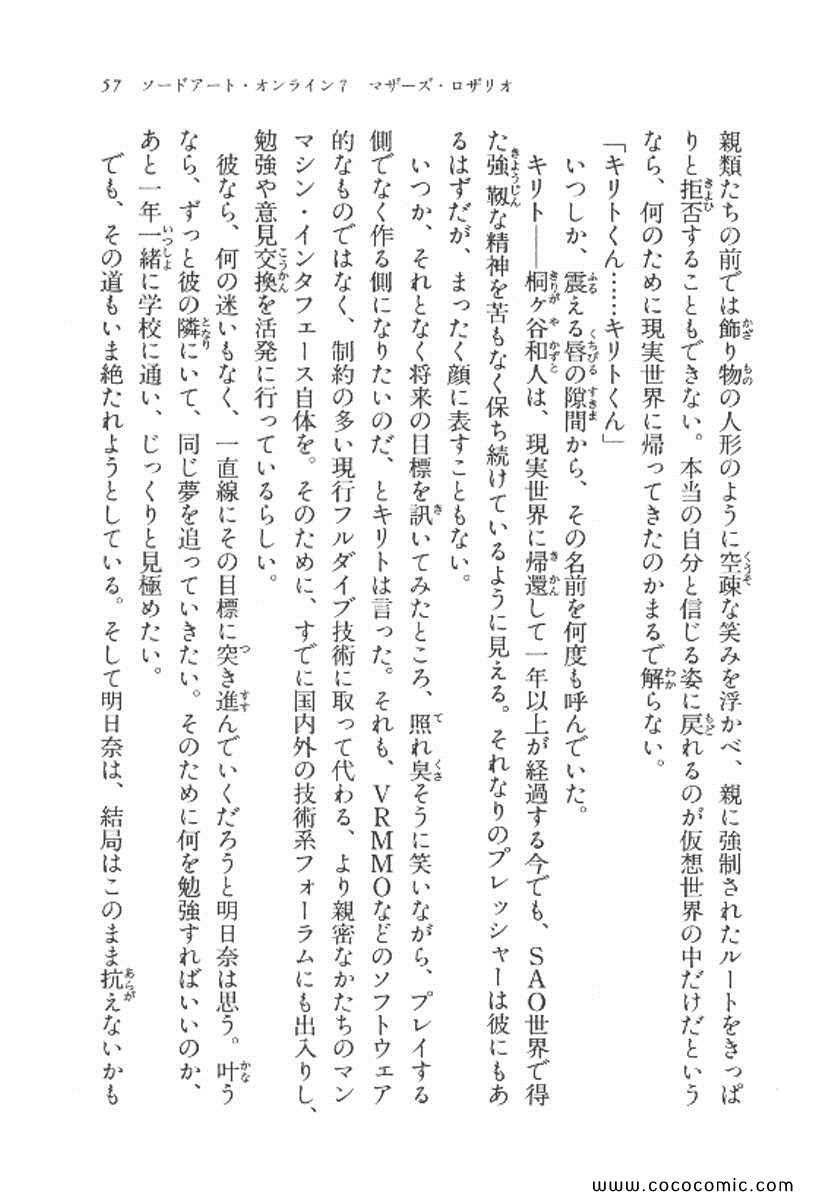 57　ソードアート・オンライン7　マザーズ・ロザリオ
親類たちの前では飾り物の人形のように空疎な笑みを浮かべ、親に強制されたルートをきっぱ
りと拒否することもできない。本当の自分と信じる姿に戻れるのが仮想世界の中だけだという
なら、何のために現実世界に帰ってきたのかまるで解らない。
「キリトくん……キリトくん」
いつしか、震える唇の隙間から、その名前を何度も呼んでいた。
キリト――桐ヶ谷和人は、現実世界に帰還して一年以上が経過する今でも、ＳＡＯ世界で得
た強靱な精神を苦もなく保ち続けているように見える。それなりのプレッシャーは彼にもあ
るはずだが、まったく顔に表すこともない。
いつか、それとなく将来の目標を訊いてみたところ、照れ臭そうに笑いながら、プレイする
側でなく作る側になりたいのだ、とキリトは言った。それも、ＶＲＭＭＯなどのソフトウェア
的なものではなく、制約の多い現行フルダイブ技術に取って代わる、より親密なかたちのマン
マシン・インタフェース自体を。そのために、すでに国内外の技術系フォーラムにも出入りし、
勉強や意見交換を活発に行っているらしい。
彼なら、何の迷いもなく、一直線にその目標に突き進んでいくだろうと明日奈は思う。叶う
なら、ずっと彼の隣にいて、同じ夢を追っていきたい。そのために何を勉強すればいいのか、
あと一年一緒に学校に通い、じっくりと見極めたい。
でも、その道もいま絶たれようとしている。そして明日奈は、結局はこのまま抗えないかも
www.cococomic.com